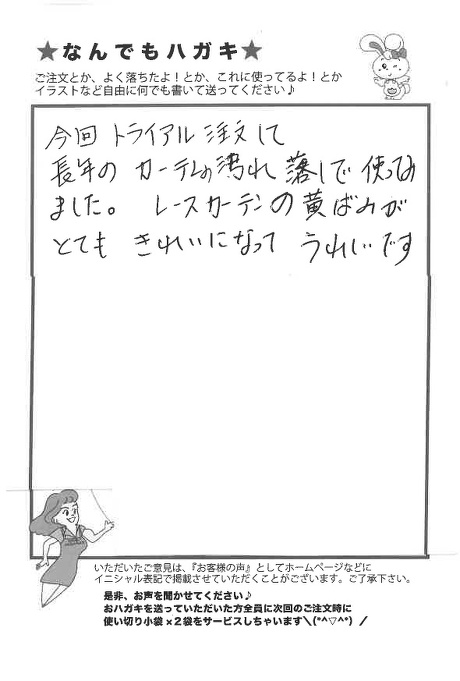 ★なんでもハガキ★
ご注文とか、よく落ちたよ！とか、これに使ってるよ！とか
イラストなど自由に何でも書いて送ってください♪
今回 トライアル注文して
長年の カーテンの汚れ 落しで 使ってみ
ました。 レースカーテンの黄ばみが
とても きれいになって うれしいです
いただいたご意見は、『お客様の声』としてホームページなどに
イニシャル表記で掲載させていただくことがございます。ご了承下さい。
是非、お声を聞かせてください♪
おハガキを送っていただいた方全員に次回のご注文時に
使い切り小袋×2袋をサービスしちゃいます＼(*^▽^*)／